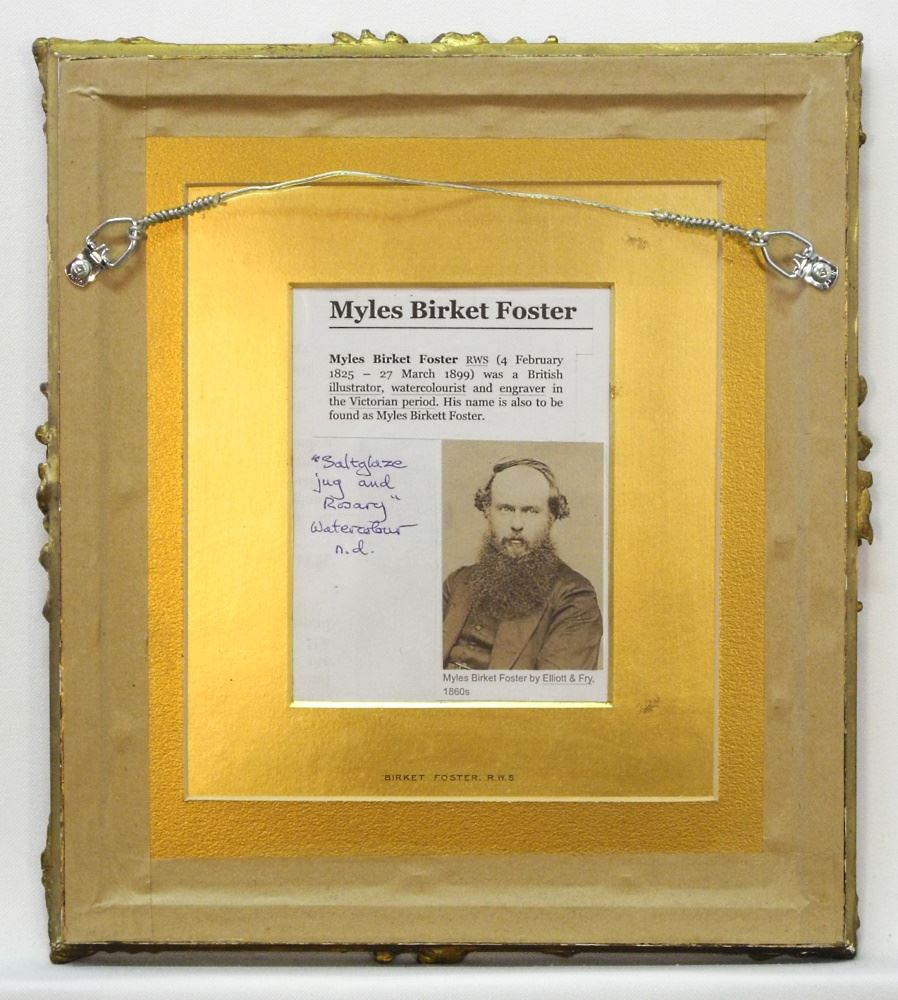 Myles Birket Foster
Myles Birket Foster RWS (4 February
1825 – 27 March 1899) was a British
illustrator, watercolourist and engraver in
the Victorian period. His name is also to be
found as Myles Birkett Foster.
"Saltglaze
jug and
Rosary"
Watercolour
n.d.
Myles Birket Foster by Elliott & Fry,
1860s
BIRKET FOSTER. R.W.S